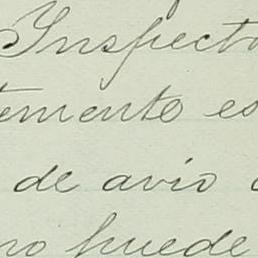 Inspecto
temento es
de avio
no puede